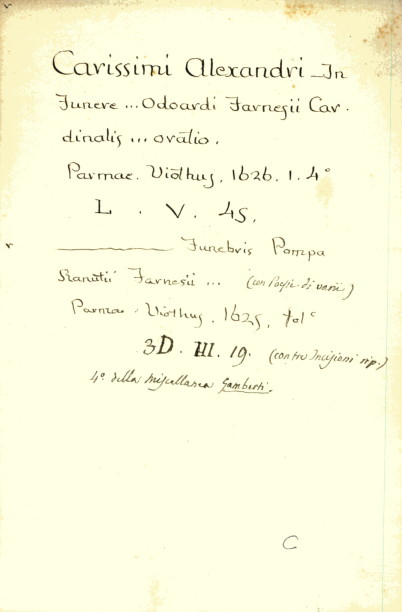 Carissimi Alexandri – In
Funere ... Odoardi Farnesii Car-
dinalis ... oratio.
Parmae. Viothus, 1626. 1. 4°
L. V. 45.
——— Funebris Pompa
Ranutii Farnesii ... (con Poesie di varii)
Parmae. Viothus. 1625, fol°
3D. III. 19. (con tre Incisioni rip.)
4° della miscellanea Gamberti.
C